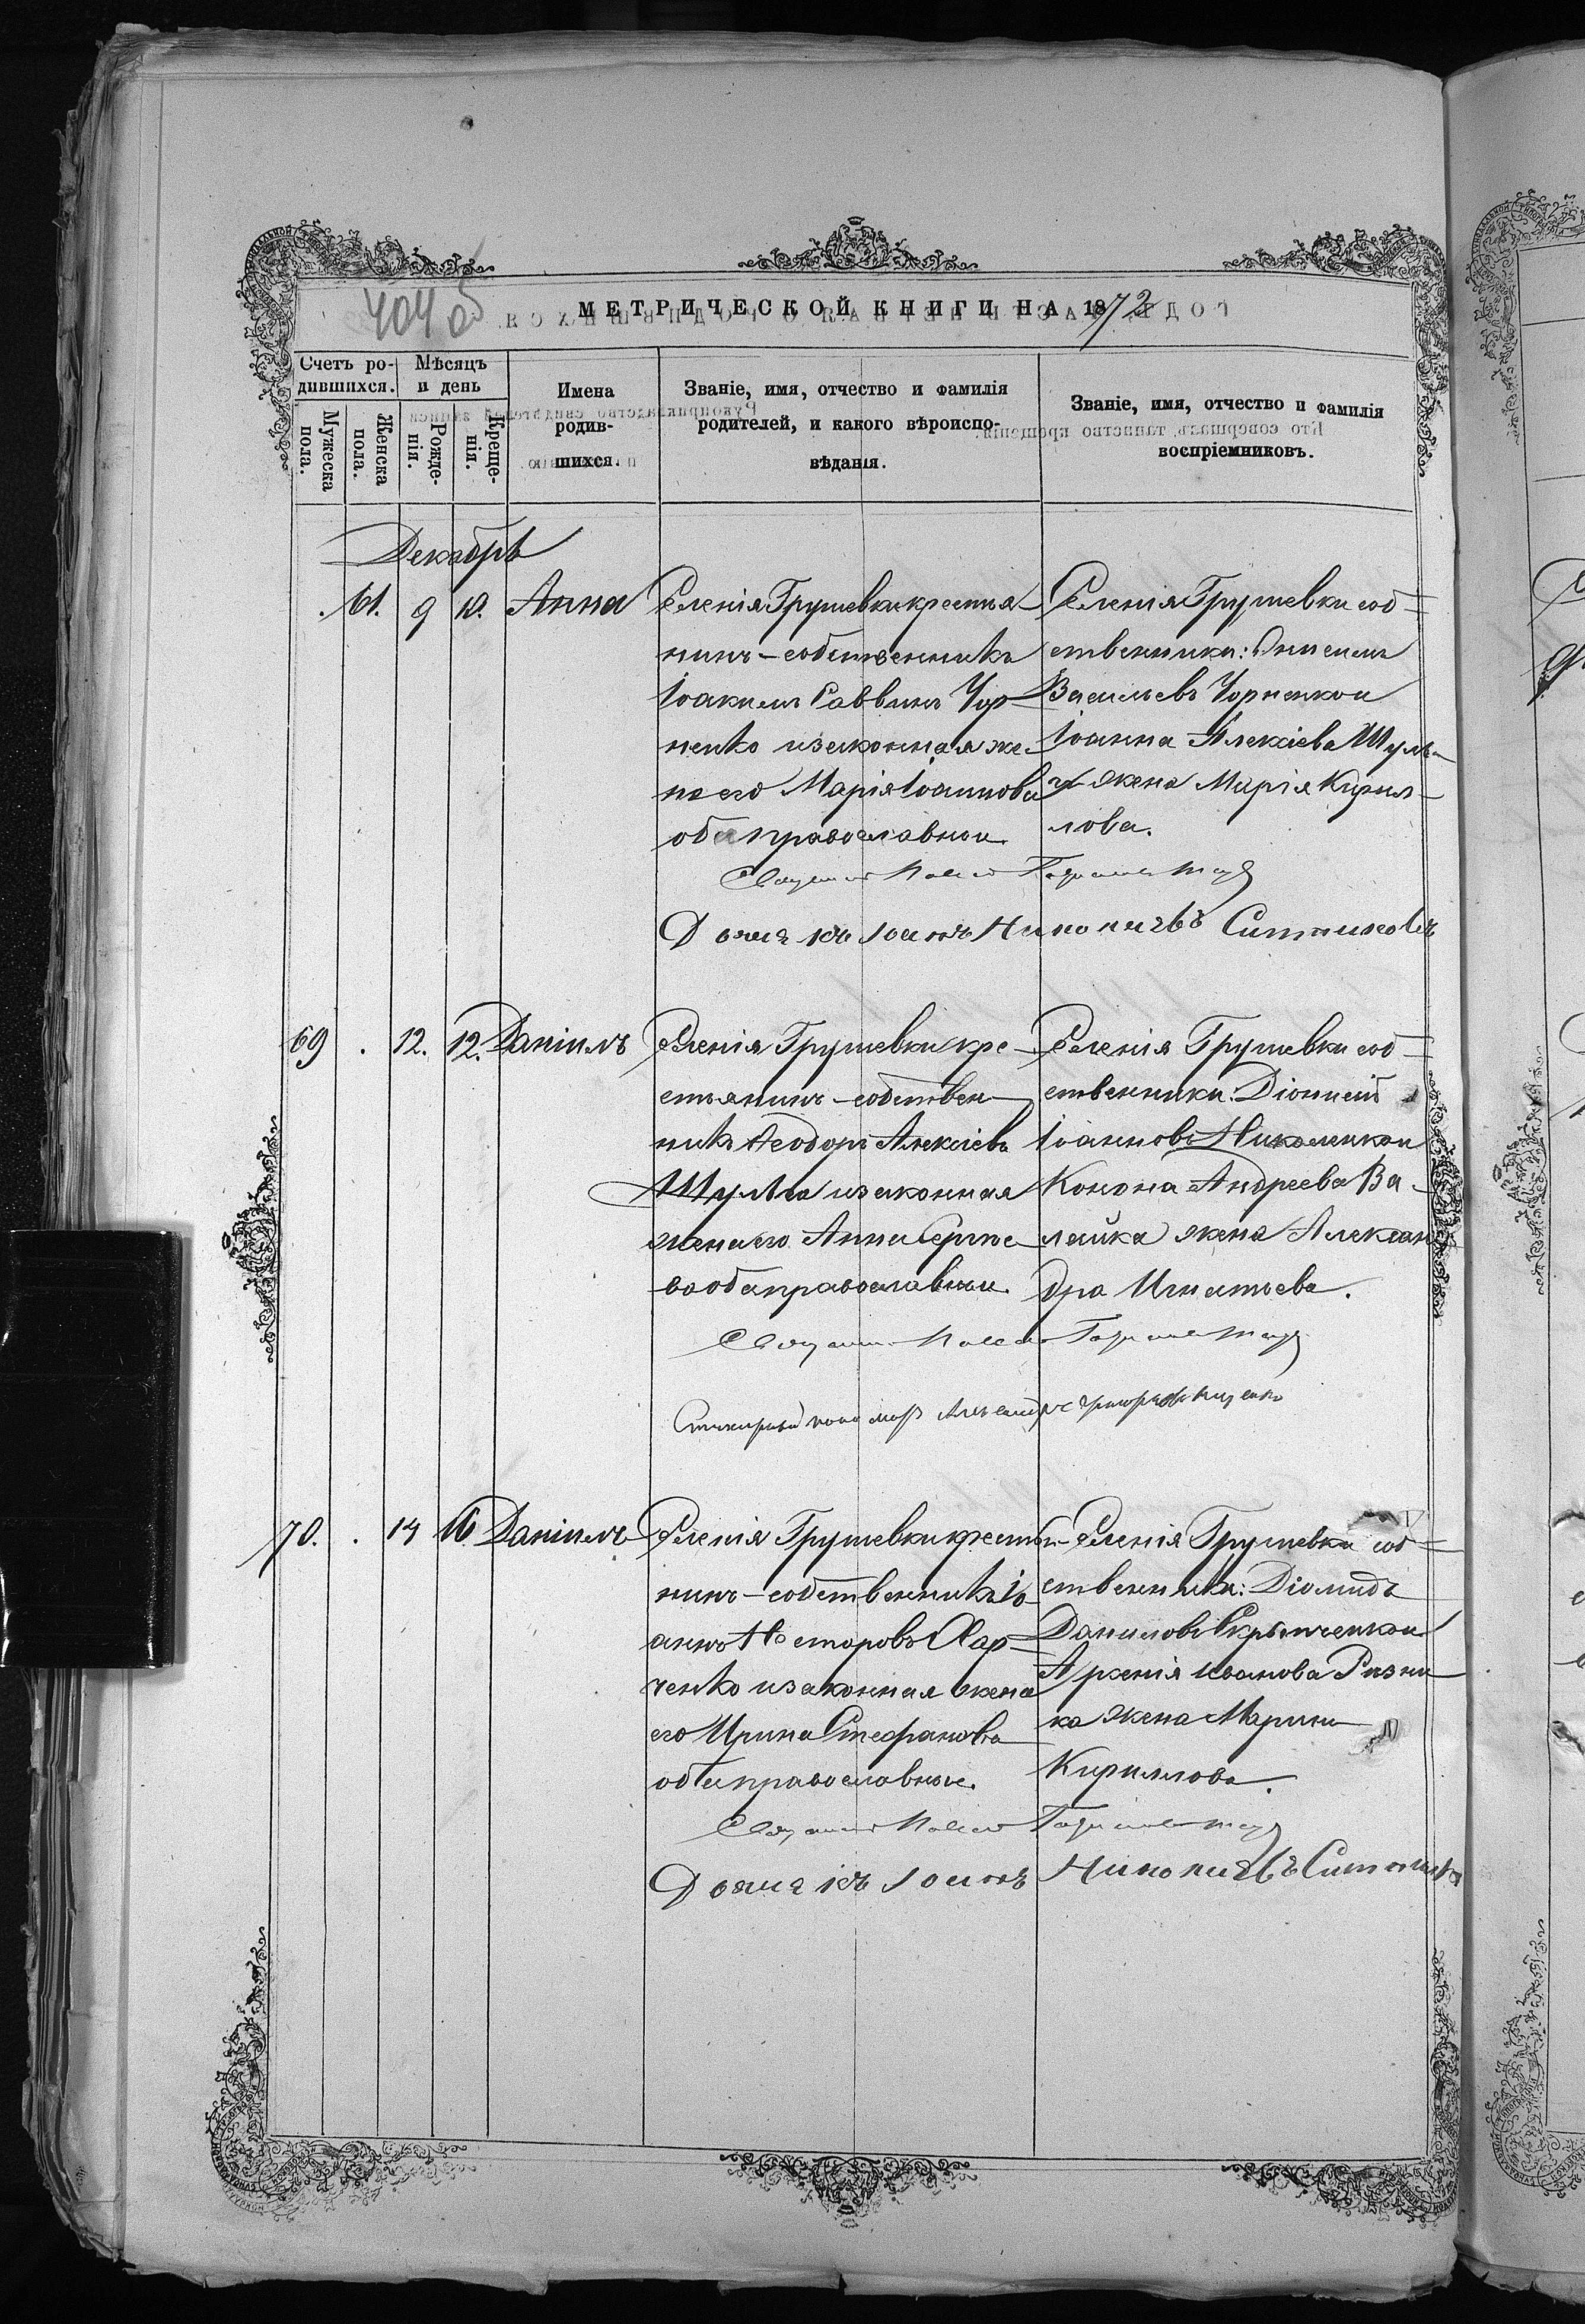 404 об
МЕТРИЧЕСКОЙ КНИГИ НА 1872
Счетъ родившихся.
Мужеска пола.
Женска пола.
Мѣсяцъ и день
Рожденія.
Крещенія.
Имена родившихся.
Званіе, имя, отчество и фамилія родителей, и какого вѣроисповѣданія.
Званіе, имя, отчество и фамилія воспріемниковъ.
Декабрь
61. 9 10. Анна
Селенія Грушевки крестья-
нинъ-собственникъ
Іоакимъ Саввинъ Чор-
ненко и законная же-
на его Марія Іоаннова
оба православныи.
Селенія Грушевки соб-
ственники:
Васильевъ Чорненко и
Іоанна Алексіева Шуль-
ги жена Марія Кирил-
лова.
69 12. 12. Даніилъ
Селенія Грушевки кре-
стьянинъ-собствен-
никъ Ѳеодоръ Алексіевъ
Шульга и законная
жена его Анна Сергіе-
ва оба православныи.
Селенія Грушевки соб-
ственники: Діонисій
Іоанновъ Николенко и
Конона Андреева Ва-
лейка жена Алексан-
дра Игнатьева.
70. 14 16 Даніилъ
Селенія Грушевки крестья-
нинъ-собственникъ Іо-
аннъ Несторовъ Хар-
ченко и законная жена
его Ирина Стефанова
оба православные.
Селенія Грушевки соб-
ственники: Діомидъ
Даниловъ Скрыпченко и
Арсенія Иванова Резни-
ка жена Марина
Кириллова.